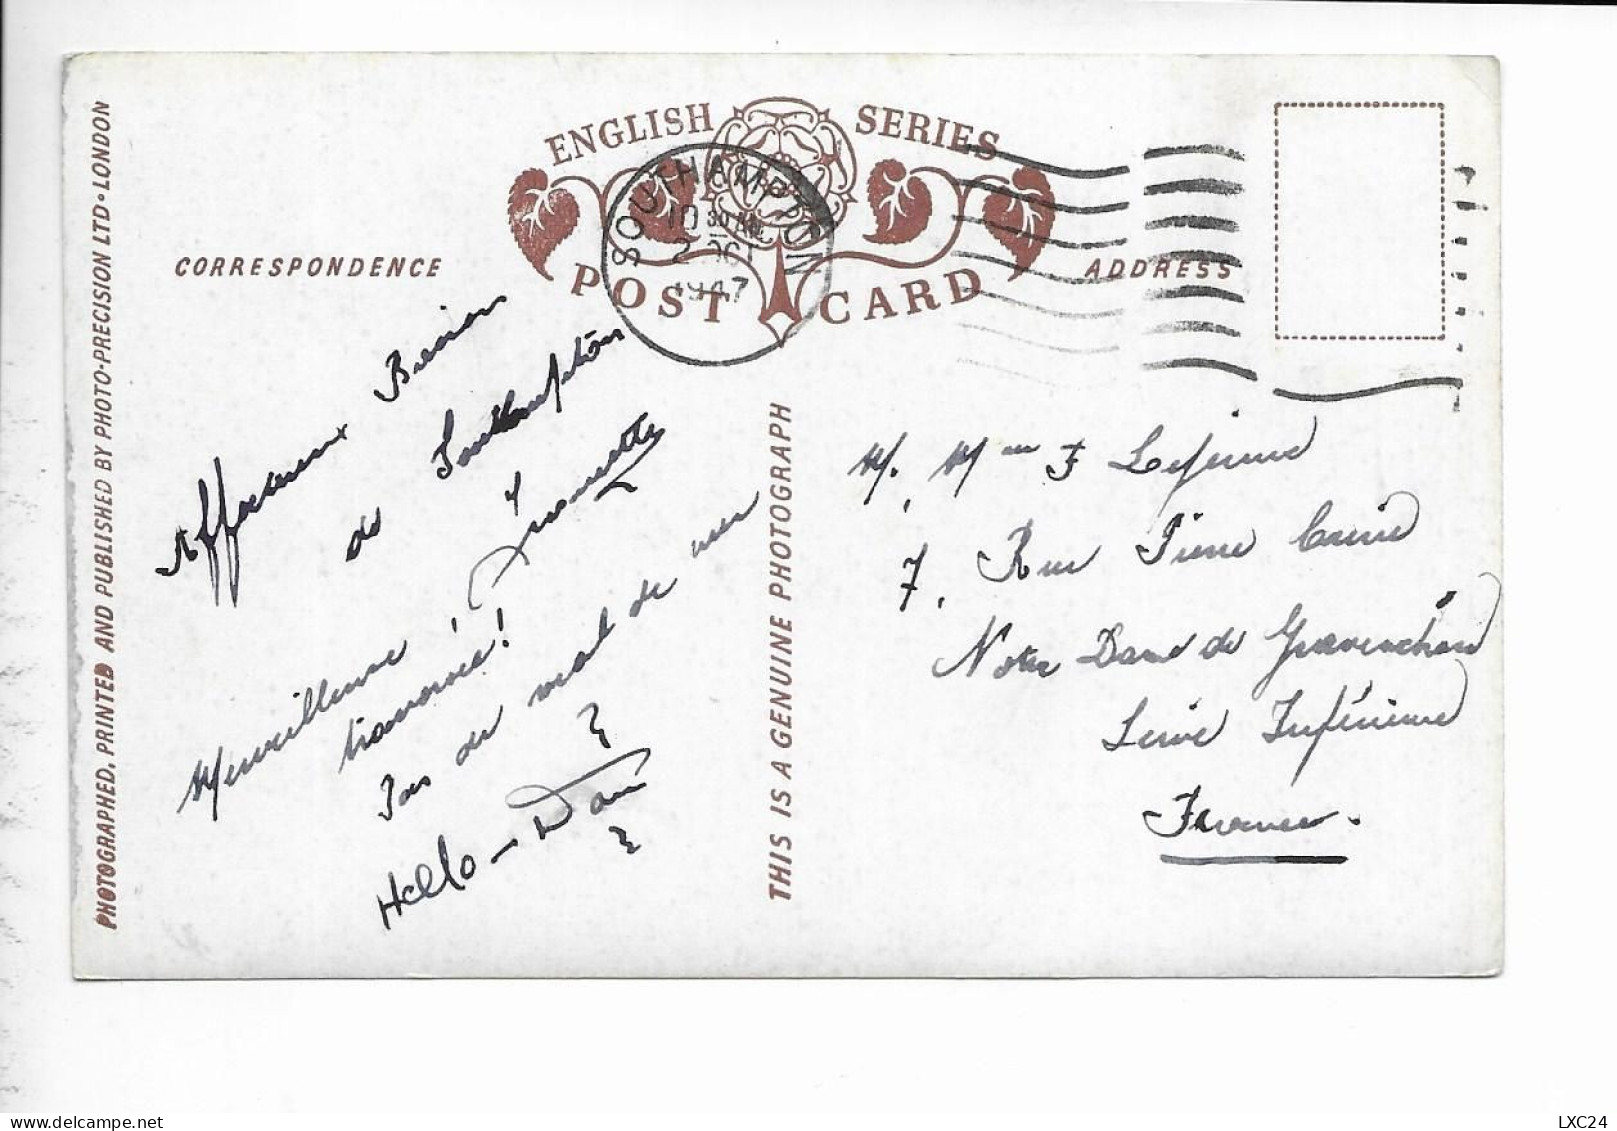 ENGLISH SERIES
POST CARD
SOUTHAMPTON
10 30 AM
2 OCT
1947
CORRESPONDENCE
ADDRESS
PHOTOGRAPHED, PRINTED AND PUBLISHED BY PHOTO-PRECISION LTD • LONDON
THIS IS A GENUINE PHOTOGRAPH
Affectueux Baisers
de Southampton
Merveilleuse
traversée!
Pas de mal de mer
Hello - Dani
M. Mme F Lejeune
7, Rue Pierre Curie
Notre Dame de Gravenchon
Seine Inférieure
France.
LXC24